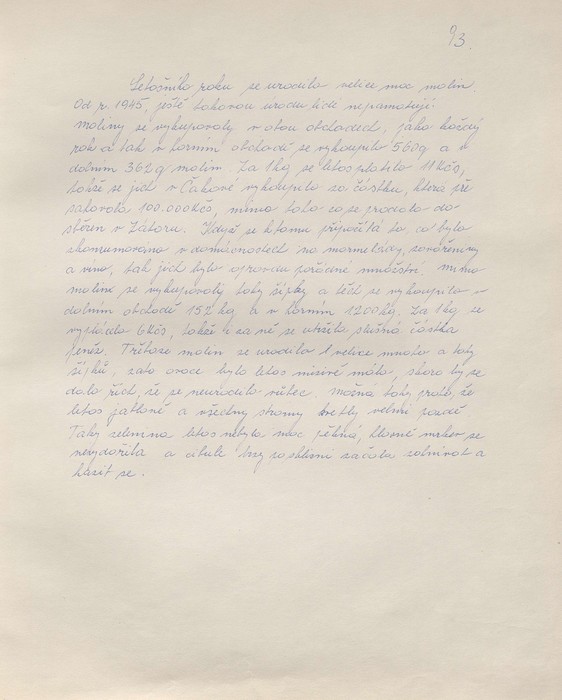 93.
Letošního roku se urodilo velice moc malin.
Od r. 1945, ještě takovou úrodu lidé nepamatují.
Maliny se vykupovaly v obou obchodech, jako každý
rok a tak v horním obchodě se vykoupilo 560 q a v
dolním 362 q malin. Za 1 kg se letos platilo 11 Kčs,
takže se jich v Čakové vykoupilo za částku, která pře
sahovala 100.000 Kčs, mimo toho co se prodalo do
sběren v Zátoru. Když se k tomu připočítá to, co bylo
zkonzumováno v domácnostech na marmelády, zavařeniny
a víno, tak jich bylo opravdu pořádné množství. Mimo
malin se vykupovaly taky šípky a těch se vykoupilo v
dolním obchodě 152 kg a v horním 1200 kg. Za 1 kg se
vyplácelo 6 Kčs, takže i za ně se utržila slušná částka
peněz. Třebaže malin se urodilo velice mnoho a taky
šípků, zato ovoce bylo letos mizivě málo, skoro by se
dalo říct, že se neurodilo vůbec. Možná taky proto, že
letos jabloně a všechny stromy kvetly velmi pozdě.
Taky zelenina letos nebyla moc pěkná, hlavně mrkev se
nevydařila a cibule brzy po sklizni začala zahnívat a
kazit se.